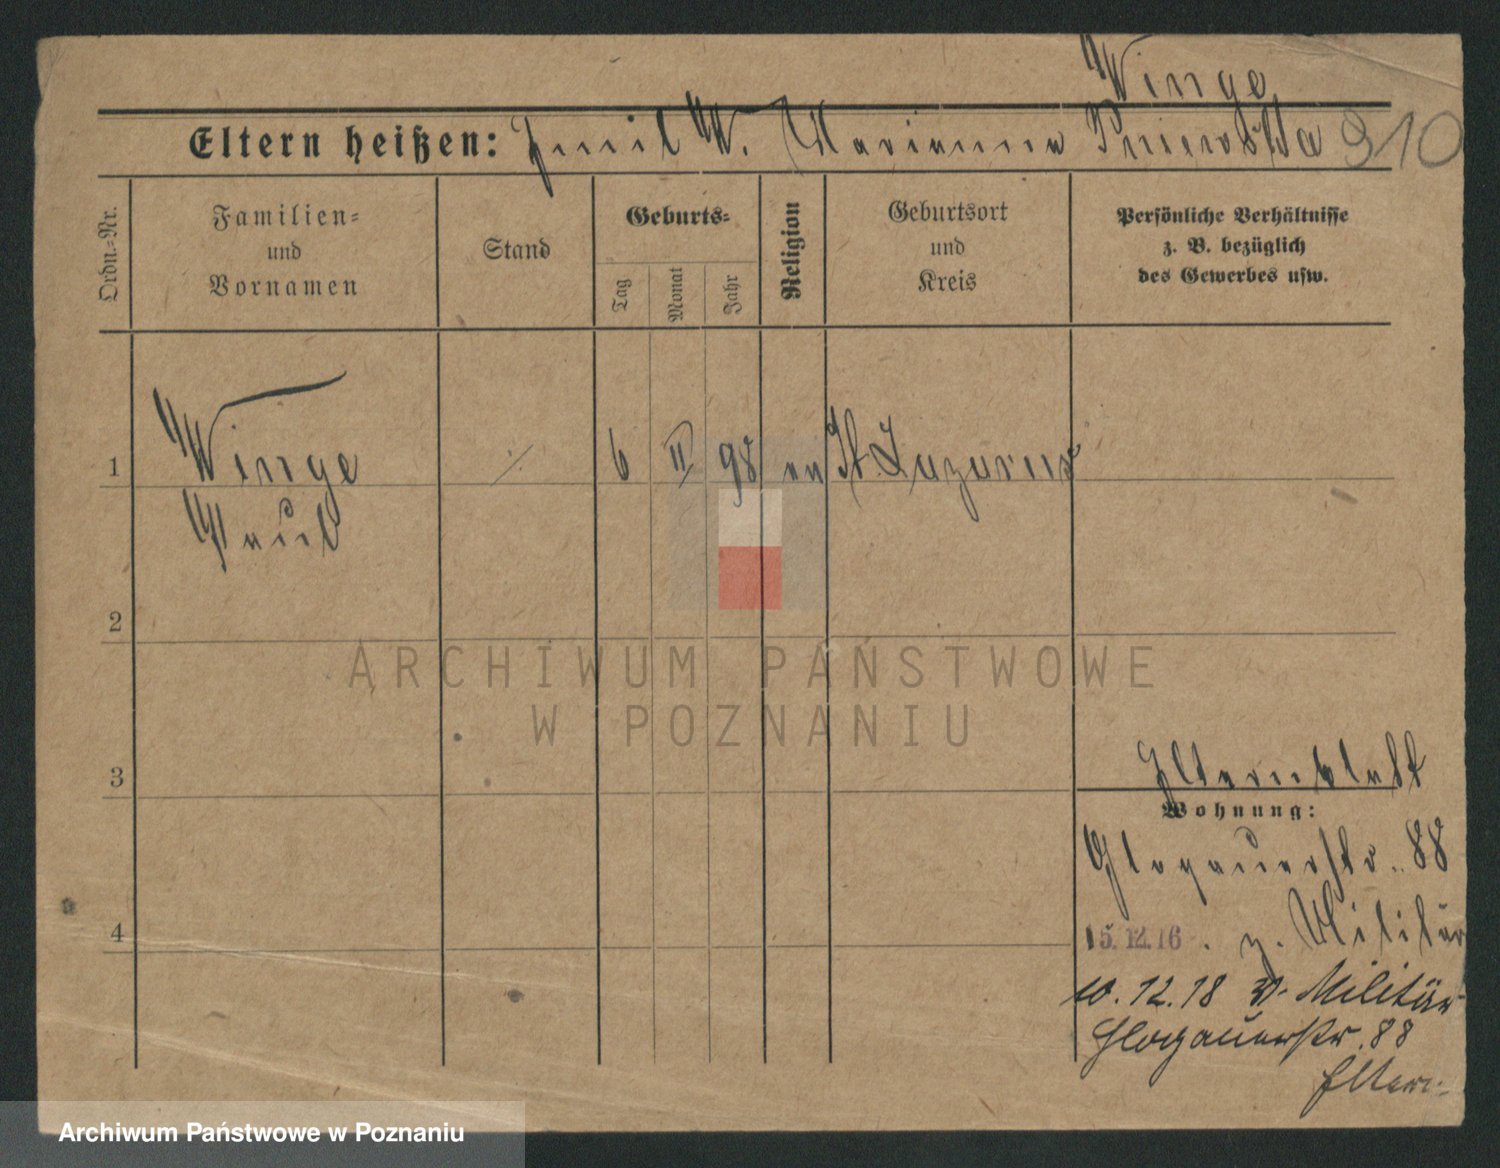 Winge
Eltern heißen: Emil W. Marianna 910
Ordn.-Nr.
Familien-
und
Vornamen
Stand
Geburts-
Tag
Monat
Jahr
Religion
Geburtsort
und
Kreis
Persönliche Verhältnisse
z. B. bezüglich
des Gewerbes usw.
1
Winge
Paul
·/·
6
II
98
ev
St. Lazarus
2
3
4
Elternblatt
Wohnung:
Glogauerstr. 88
15.12.16. z. Militär
10.12.18 v. Militär
Glogauerstr. 88
Eltern
ARCHIWUM PAŃSTWOWE
W POZNANIU
Archiwum Państwowe w Poznaniu